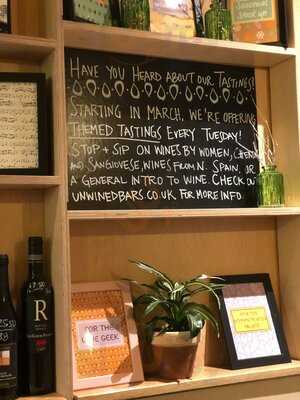 HAVE YOU HEARD ABOUT OUR TASTINGS?
STARTING IN MARCH, WE'RE OFFERING
THEMED TASTINGS EVERY TUESDAY!
STOP + SIP ON WINES BY WOMEN, CHENIN
AND SANGIOVESE, WINES FROM N. SPAIN, OR
A GENERAL INTRO TO WINE. CHECK ON
UNWINEDBARS.CO.UK FOR MORE INFO
R
FOR THE
GEEK